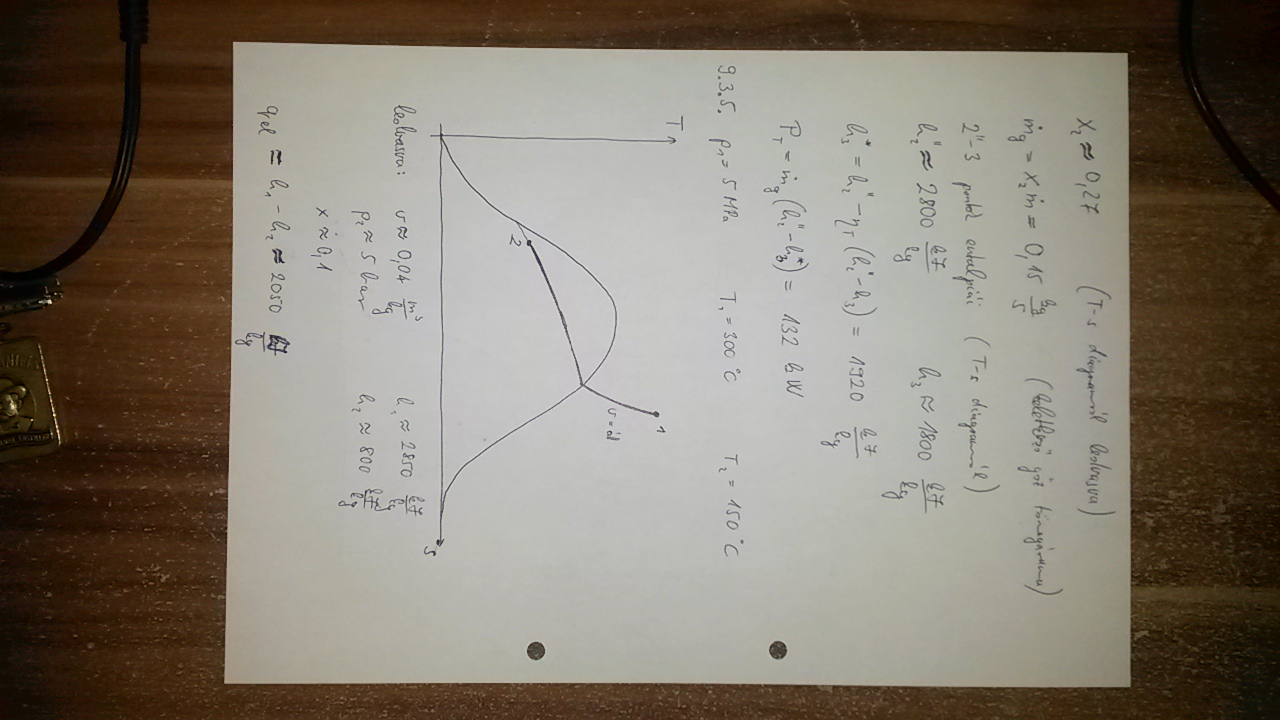 x₂ ≈ 0,27 (T-s diagramról leolvasva)
ṁg = x₂ṁ = 0,15 kg/s (keletkező gőz tömegárama)
2"-3 pontok entalpiái (T-s diagramról)
h₂" ≈ 2800 kJ/kg h₃ ≈ 1800 kJ/kg
h₃* = h₂" - ηT (h₂" - h₃) = 1920 kJ/kg
PT = ṁg (h₂" - h₃*) = 132 kW
9.3.5. p₁ = 5 MPa T₁ = 300 °C T₂ = 150 °C
T
1
v = ál
2
s
leolvasva: v ≈ 0,04 m³/kg h₁ ≈ 2850 kJ/kg
p₂ ≈ 5 bar h₂ ≈ 800 kJ/kg
x ≈ 0,1
qel ≈ h₁ - h₂ ≈ 2050 kJ/kg